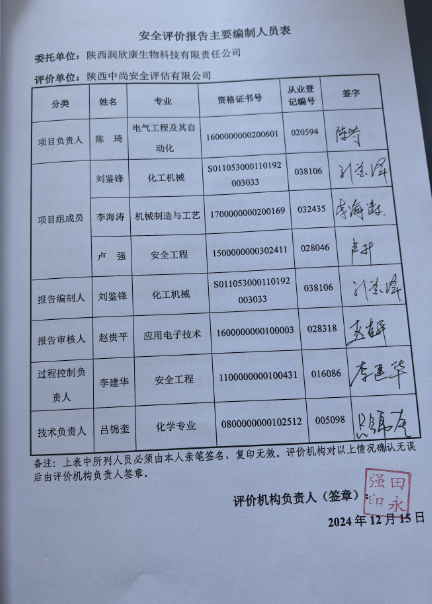 安全评价报告主要编制人员表
委托单位：陕西润欣康生物科技有限责任公司
评价单位：陕西中尚安全评估有限公司
分类 姓名 专业 资格证书号 从业登记编号 签字
项目负责人 陈 琦 电气工程及其自动化 1600000000200601 020594
项目组成员 刘鉴锋 化工机械 S011053000110192003033 038106 刘鉴锋
李海涛 机械制造与工艺 1700000000200169 032435 李海涛
卢 强 安全工程 1500000000302411 028046
报告编制人 刘鉴锋 化工机械 S011053000110192003033 038106 刘鉴锋
报告审核人 赵贵平 应用电子技术 1600000000100003 028318
过程控制负责人 李建华 安全工程 1100000000100431 016086 李建华
技术负责人 吕锦奎 化学专业 0800000000102512 005098
备注：上表中所列人员必须由本人亲笔签名，复印无效。评价机构对以上情况确认无误
后由评价机构负责人签章。
评价机构负责人（签章）：
田永强印
2024 年 12 月 15 日